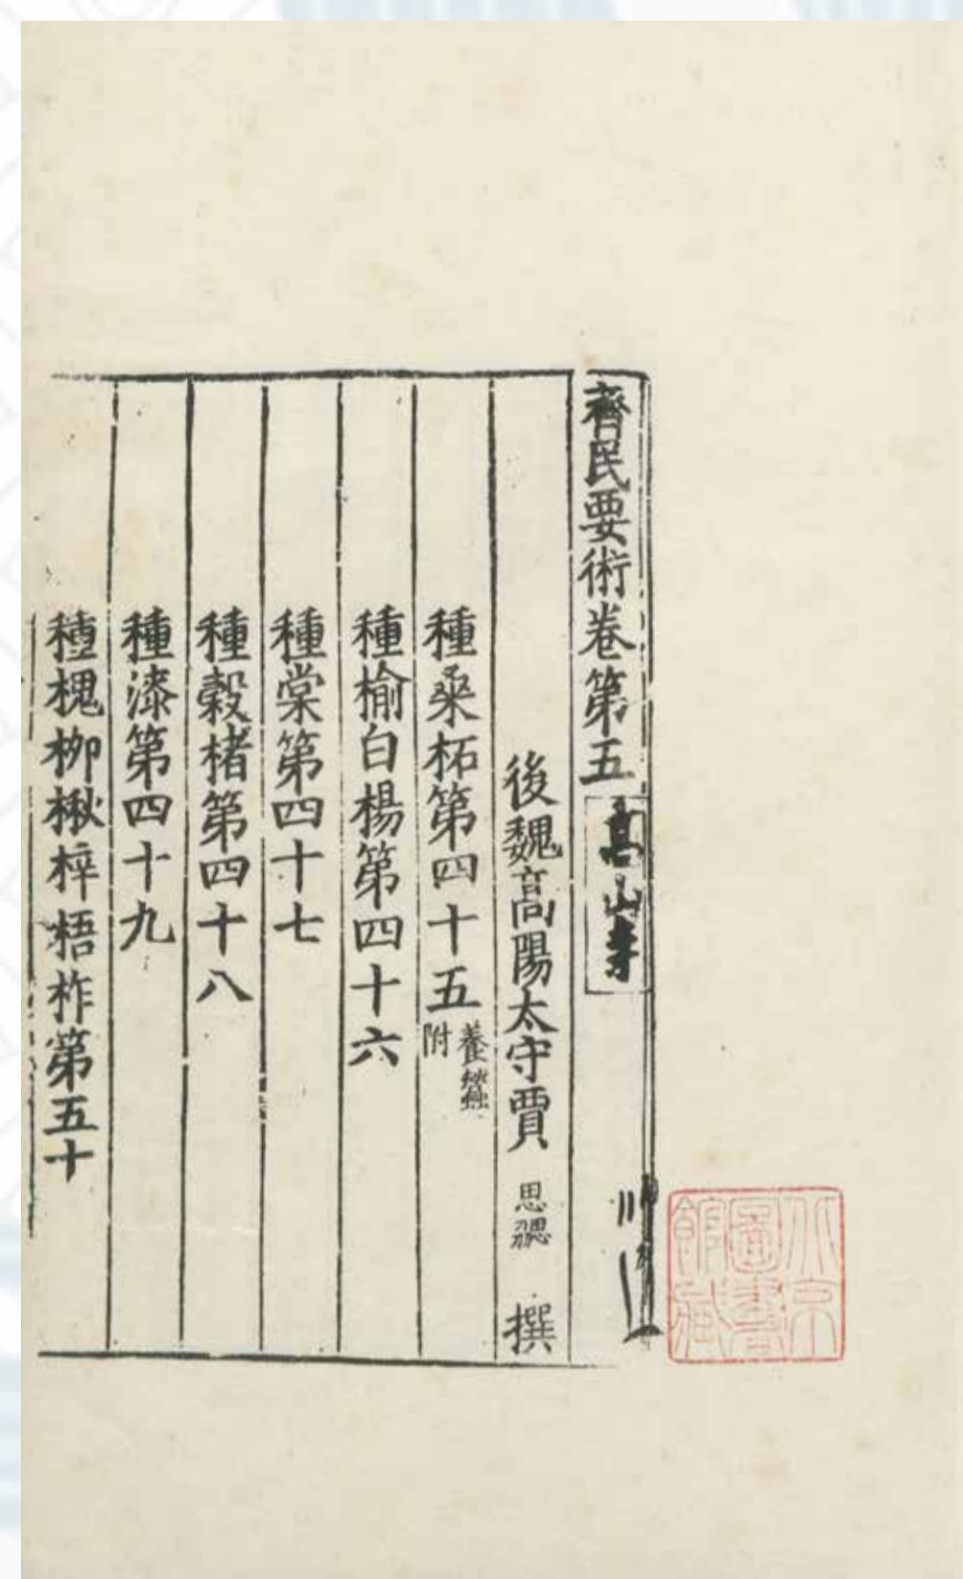 齊民要術卷第五
高山寺
後魏高陽太守賈 思勰 撰
種桑柘第四十五 養蠶附
種榆白楊第四十六
種棠第四十七
種榖楮第四十八
種漆第四十九
種槐柳楸梓梧柞第五十
北京圖書館藏